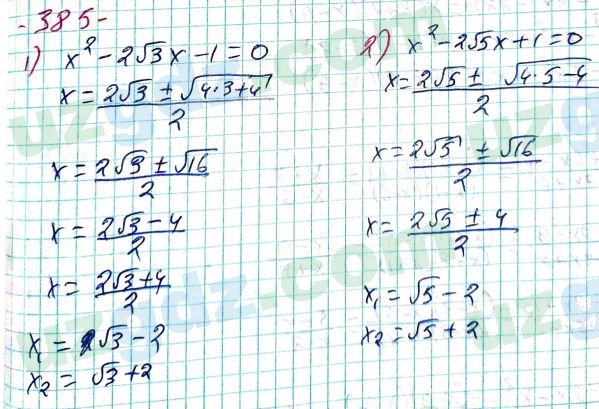 -385-
1) x² - 2√3x - 1 = 0
x = (2√3 ± √(4·3+4))/2
x = (2√3 ± √16)/2
x = (2√3 - 4)/2
x = (2√3 + 4)/2
x₁ = √3 - 2
x₂ = √3 + 2
2) x² - 2√5x + 1 = 0
x = (2√5 ± √(4·5-4))/2
x = (2√5 ± √16)/2
x = (2√5 ± 4)/2
x₁ = √5 - 2
x₂ = √5 + 2
uzgdz.com
uzgdz.com